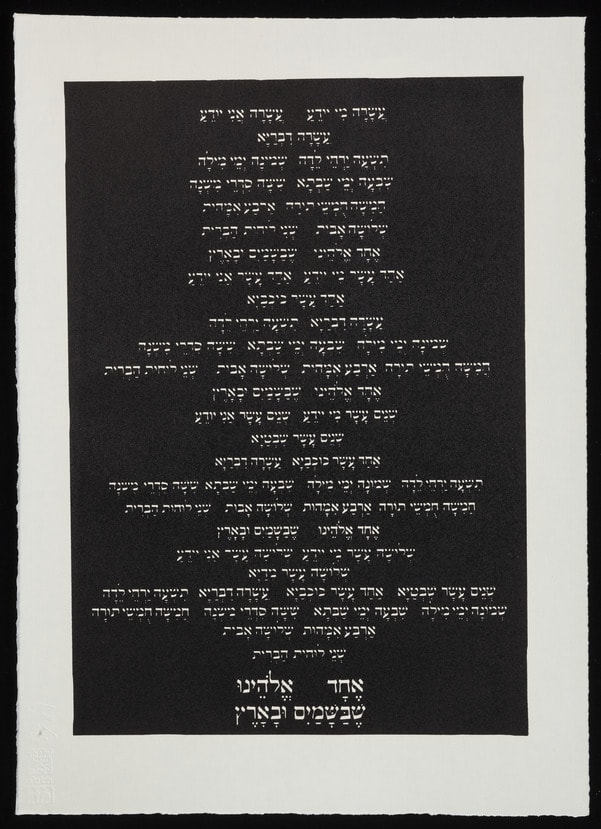 עֲשָׂרָה מִי יוֹדֵעַ עֲשָׂרָה אֲנִי יוֹדֵעַ
עֲשָׂרָה דִבְּרַיָּא
תִּשְׁעָה יַרְחֵי לֵדָה שְׁמוֹנָה יְמֵי מִילָה
שִׁבְעָה יְמֵי שַׁבְּתָא שִׁשָּׁה סִדְרֵי מִשְׁנָה
חֲמִשָּׁה חֻמְשֵׁי תוֹרָה אַרְבַּע אִמָּהוֹת
שְׁלוֹשָׁה אָבוֹת שְׁנֵי לוּחוֹת הַבְּרִית
אֶחָד אֱלֹהֵינוּ שֶׁבַּשָּׁמַיִם וּבָאָרֶץ
אַחַד עָשָׂר מִי יוֹדֵעַ אַחַד עָשָׂר אֲנִי יוֹדֵעַ
אַחַד עָשָׂר כּוֹכְבַיָּא
עֲשָׂרָה דִבְּרַיָּא תִּשְׁעָה יַרְחֵי לֵדָה
שְׁמוֹנָה יְמֵי מִילָה שִׁבְעָה יְמֵי שַׁבְּתָא שִׁשָּׁה סִדְרֵי מִשְׁנָה
חֲמִשָּׁה חֻמְשֵׁי תוֹרָה אַרְבַּע אִמָּהוֹת שְׁלוֹשָׁה אָבוֹת שְׁנֵי לוּחוֹת הַבְּרִית
אֶחָד אֱלֹהֵינוּ שֶׁבַּשָּׁמַיִם וּבָאָרֶץ
שְׁנֵים עָשָׂר מִי יוֹדֵעַ שְׁנֵים עָשָׂר אֲנִי יוֹדֵעַ
שְׁנֵים עָשָׂר שִׁבְטַיָּא
אַחַד עָשָׂר כּוֹכְבַיָּא עֲשָׂרָה דִבְּרַיָּא
תִּשְׁעָה יַרְחֵי לֵדָה שְׁמוֹנָה יְמֵי מִילָה שִׁבְעָה יְמֵי שַׁבְּתָא שִׁשָּׁה סִדְרֵי מִשְׁנָה
חֲמִשָּׁה חֻמְשֵׁי תוֹרָה אַרְבַּע אִמָּהוֹת שְׁלוֹשָׁה אָבוֹת שְׁנֵי לוּחוֹת הַבְּרִית
אֶחָד אֱלֹהֵינוּ שֶׁבַּשָּׁמַיִם וּבָאָרֶץ
שְׁלוֹשָׁה עָשָׂר מִי יוֹדֵעַ שְׁלוֹשָׁה עָשָׂר אֲנִי יוֹדֵעַ
שְׁלוֹשָׁה עָשָׂר מִדַּיָּא
שְׁנֵים עָשָׂר שִׁבְטַיָּא אַחַד עָשָׂר כּוֹכְבַיָּא עֲשָׂרָה דִבְּרַיָּא תִּשְׁעָה יַרְחֵי לֵדָה
שְׁמוֹנָה יְמֵי מִילָה שִׁבְעָה יְמֵי שַׁבְּתָא שִׁשָּׁה סִדְרֵי מִשְׁנָה חֲמִשָּׁה חֻמְשֵׁי תוֹרָה
אַרְבַּע אִמָּהוֹת שְׁלוֹשָׁה אָבוֹת
שְׁנֵי לוּחוֹת הַבְּרִית
אֶחָד אֱלֹהֵינוּ
שֶׁבַּשָּׁמַיִם וּבָאָרֶץ